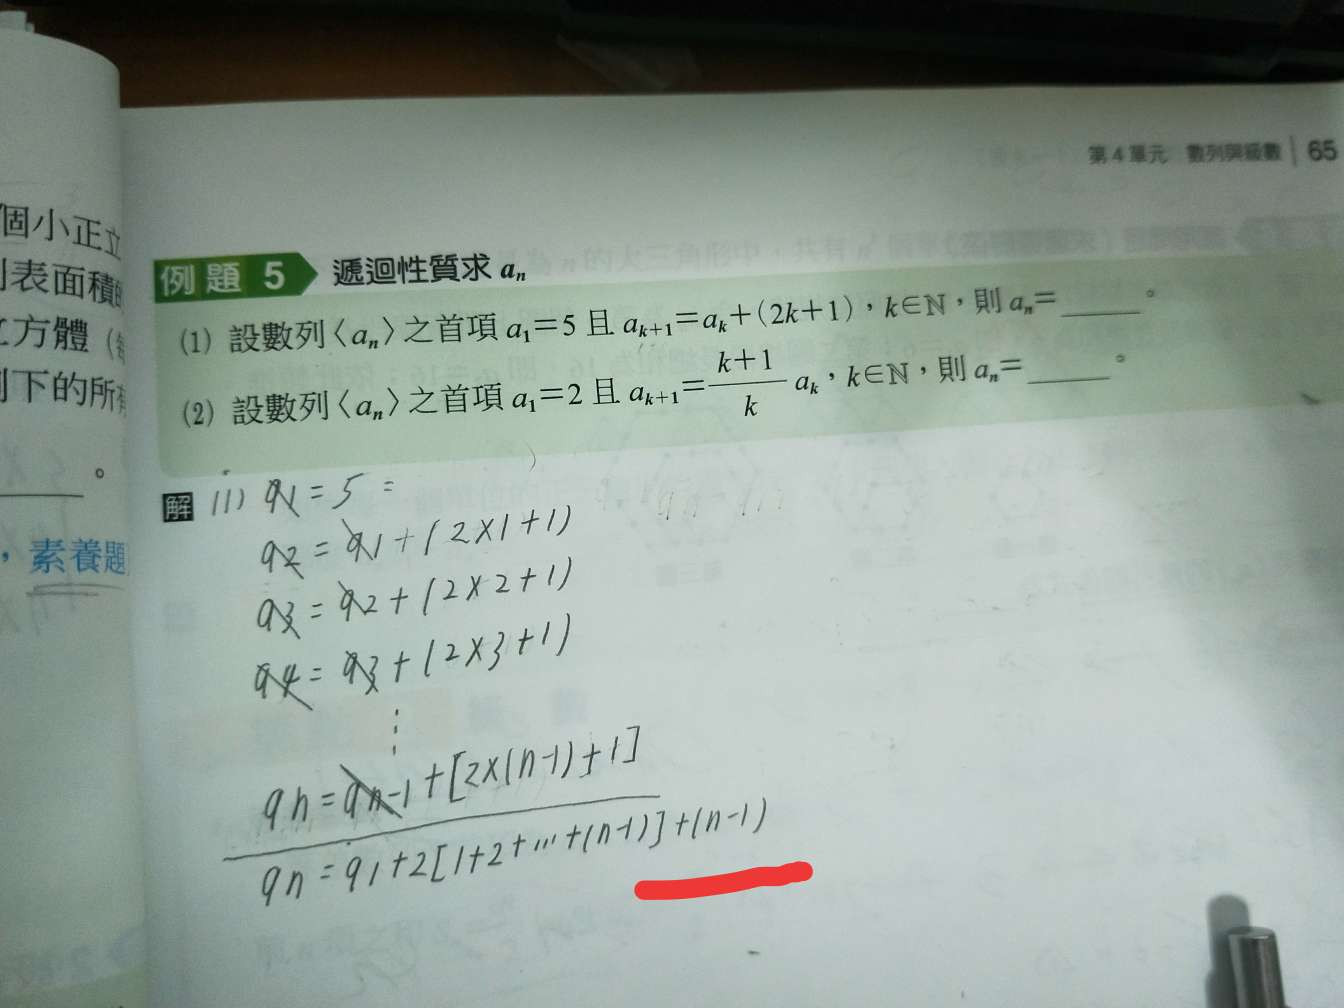 第4單元 數列與級數 65
個小正立
表面積
方體
下的所有
。
，素養題
例題 5 遞迴性質求 aₙ
(1) 設數列〈aₙ〉之首項 a₁=5 且 aₖ₊₁=aₖ+(2k+1)，k∈ℕ，則 aₙ=______。
(2) 設數列〈aₙ〉之首項 a₁=2 且 aₖ₊₁=(k+1)/k aₖ，k∈ℕ，則 aₙ=______。
解 (1) a1 = 5 =
a2 = a1 + (2×1+1)
a3 = a2 + (2×2+1)
a4 = a3 + (2×3+1)
⋮
an = an-1 + [2×(n-1)+1]
an = a1+2[1+2+…+(n-1)]+(n-1)